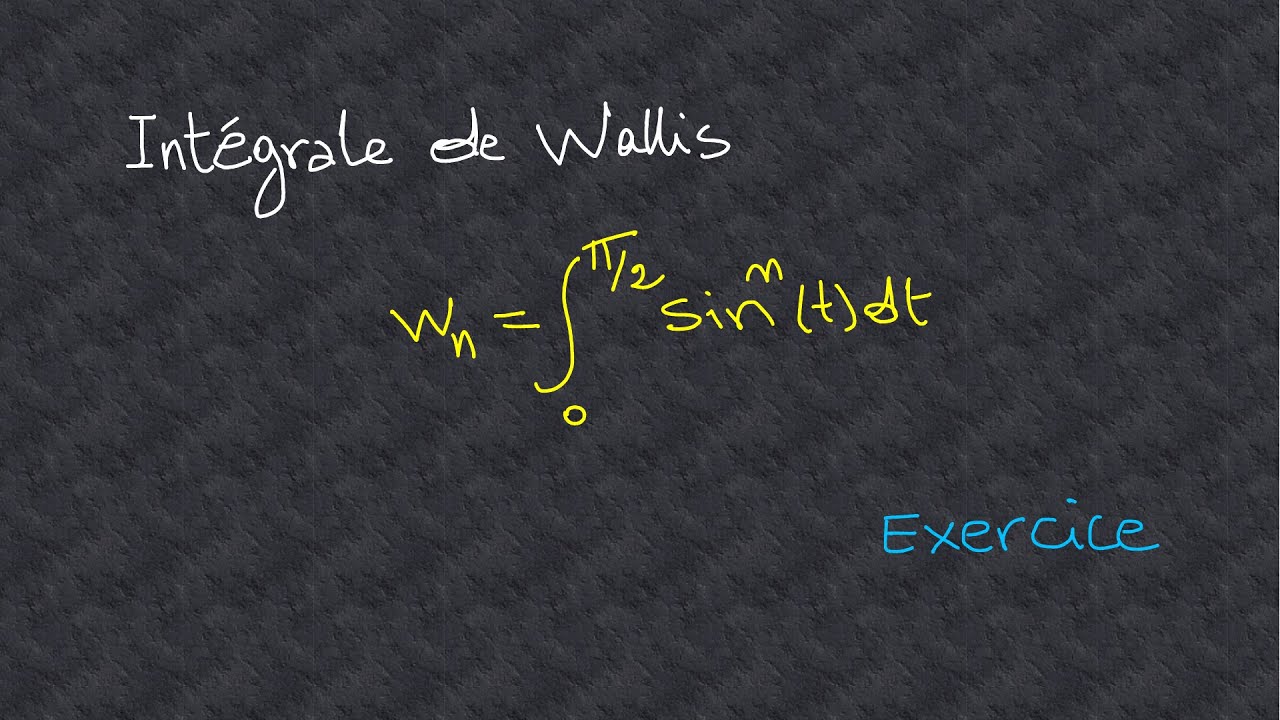 Intégrale de Wallis
Wₙ = ∫₀^π/2 sinⁿ(t)dt
Exercice